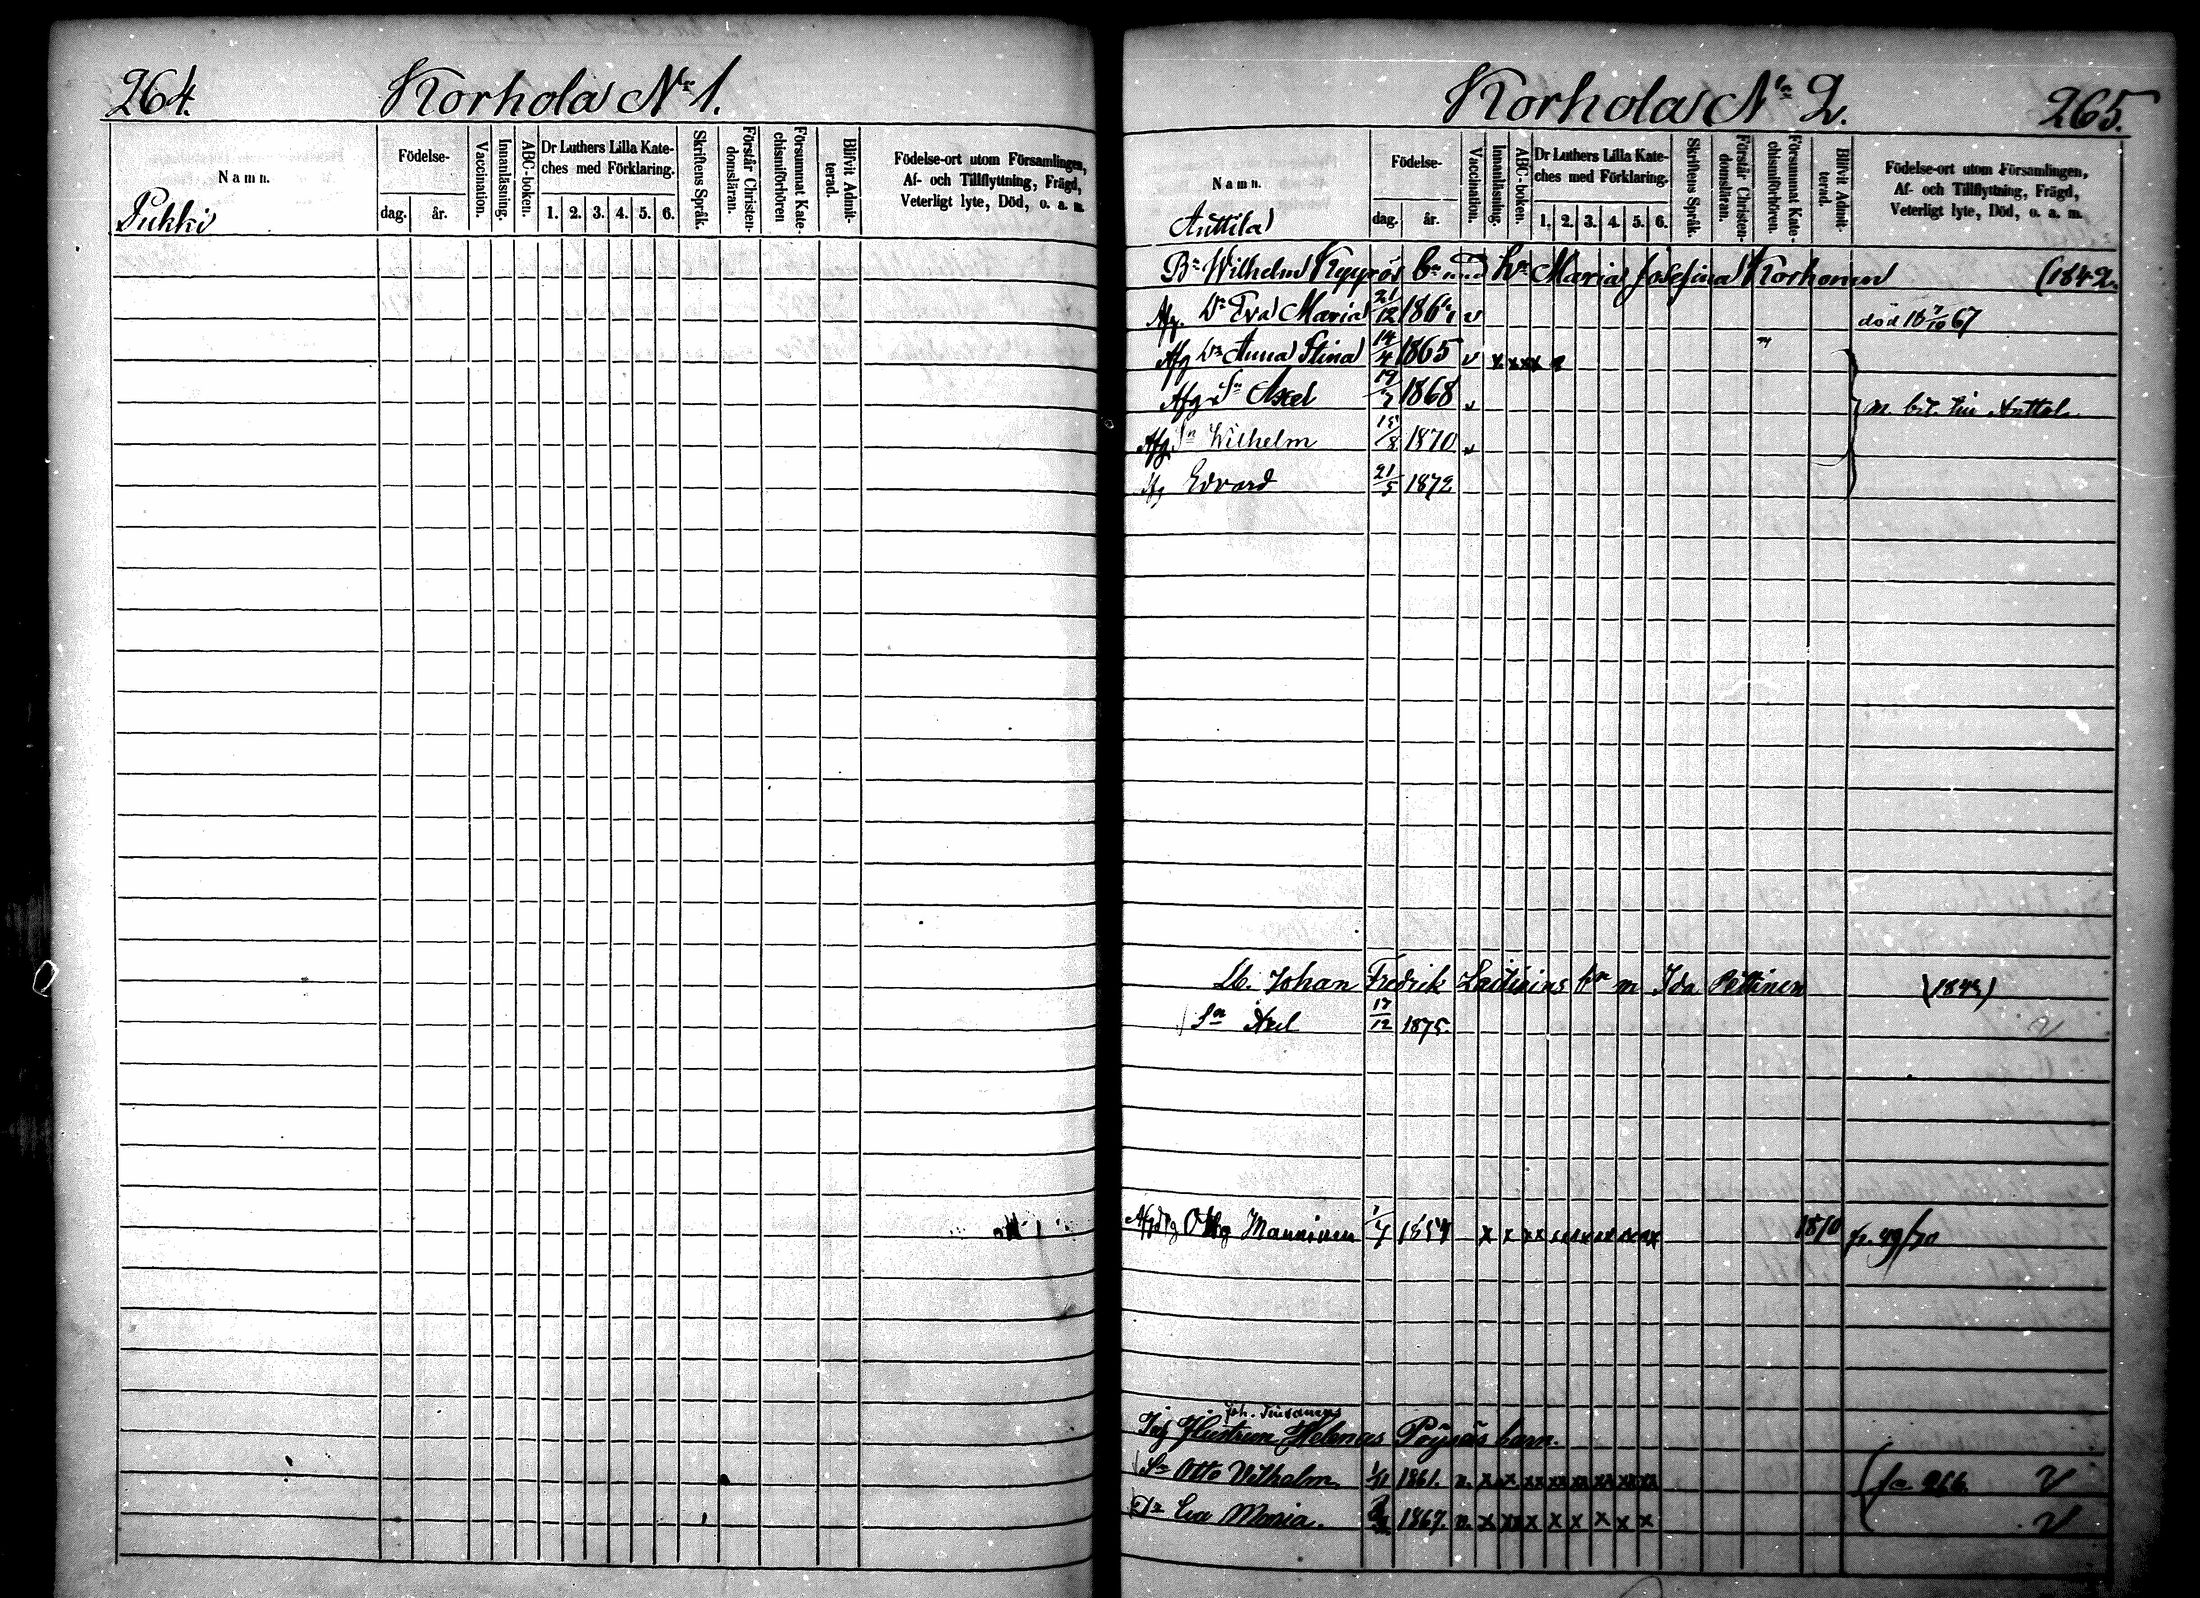 264.
Korhola N:o 1.
Namn.
Födelse-
dag. år.
Vaccination.
Innanläsning.
ABC-boken.
Dr Luthers Lilla Kate-
ches med Förklaring.
1. 2. 3. 4. 5. 6.
Skriftens Språk.
Förstår Christen-
domsläran.
Försummat Kate-
chismiförhören
Blifvit Admit-
terad.
Födelse-ort utom Församlingen,
Af- och Tillflyttning, Frägd,
Veterligt lyte, Död, o. a. m.
Pukki
Korhola N:o 2.
265.
Namn.
Födelse-
dag. år.
Vaccination.
Innanläsning.
ABC-boken.
Dr Luthers Lilla Kate-
ches med Förklaring.
1. 2. 3. 4. 5. 6.
Skriftens Språk.
Förstår Christen-
domsläran.
Försummat Kate-
chismiförhören.
Blifvit Admit-
terad.
Födelse-ort utom Församlingen,
Af- och Tillflyttning, Frägd,
Veterligt lyte, Död, o. a. m.
Anttila
Bn Wilhelm Kyyrös hu Maria Josefina Korhonen (1842.
Afg. Dr Eva Maria 21/12 1864 v död 7/10 67
Afg Dr Anna Stina 14/4 1865 v x x x x
Afg Sn Axel 19/7 1868 v
Afg. Sn Wilhelm 15/8 1870 v
Afg Edvard 21/5 1872
Johan Fredrik hu m Ida (1849)
Sn Axel 17/12 1875. v
Manninen 1/7 x x x x 1870
Helenas barn.
Sn Otto Vilhelm 1861. v. x x x x x x x x x v
Dr Eva Maria. 1867. v. x x x x x x x x x v